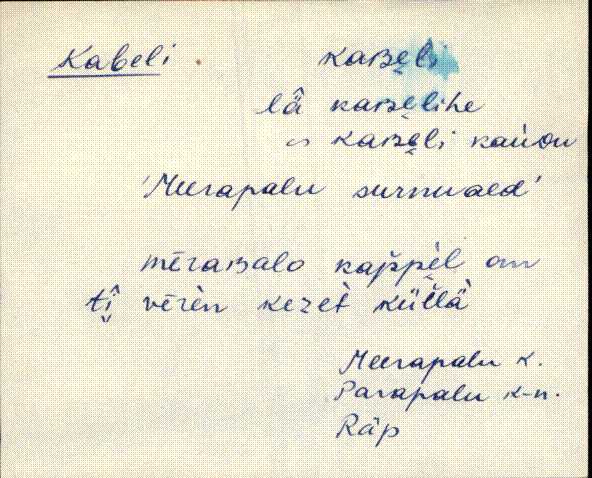 Kabeli kaʙe̬li
lä̂ kaʙe̬lihe
" kaʙe̬li
'Meerapalu surnuaed'
mēraʙalo kap̆pèl on
tî̬ vērèn kezèt kül̆là
Meerapalu k.
Parapalu k-n.
Räp